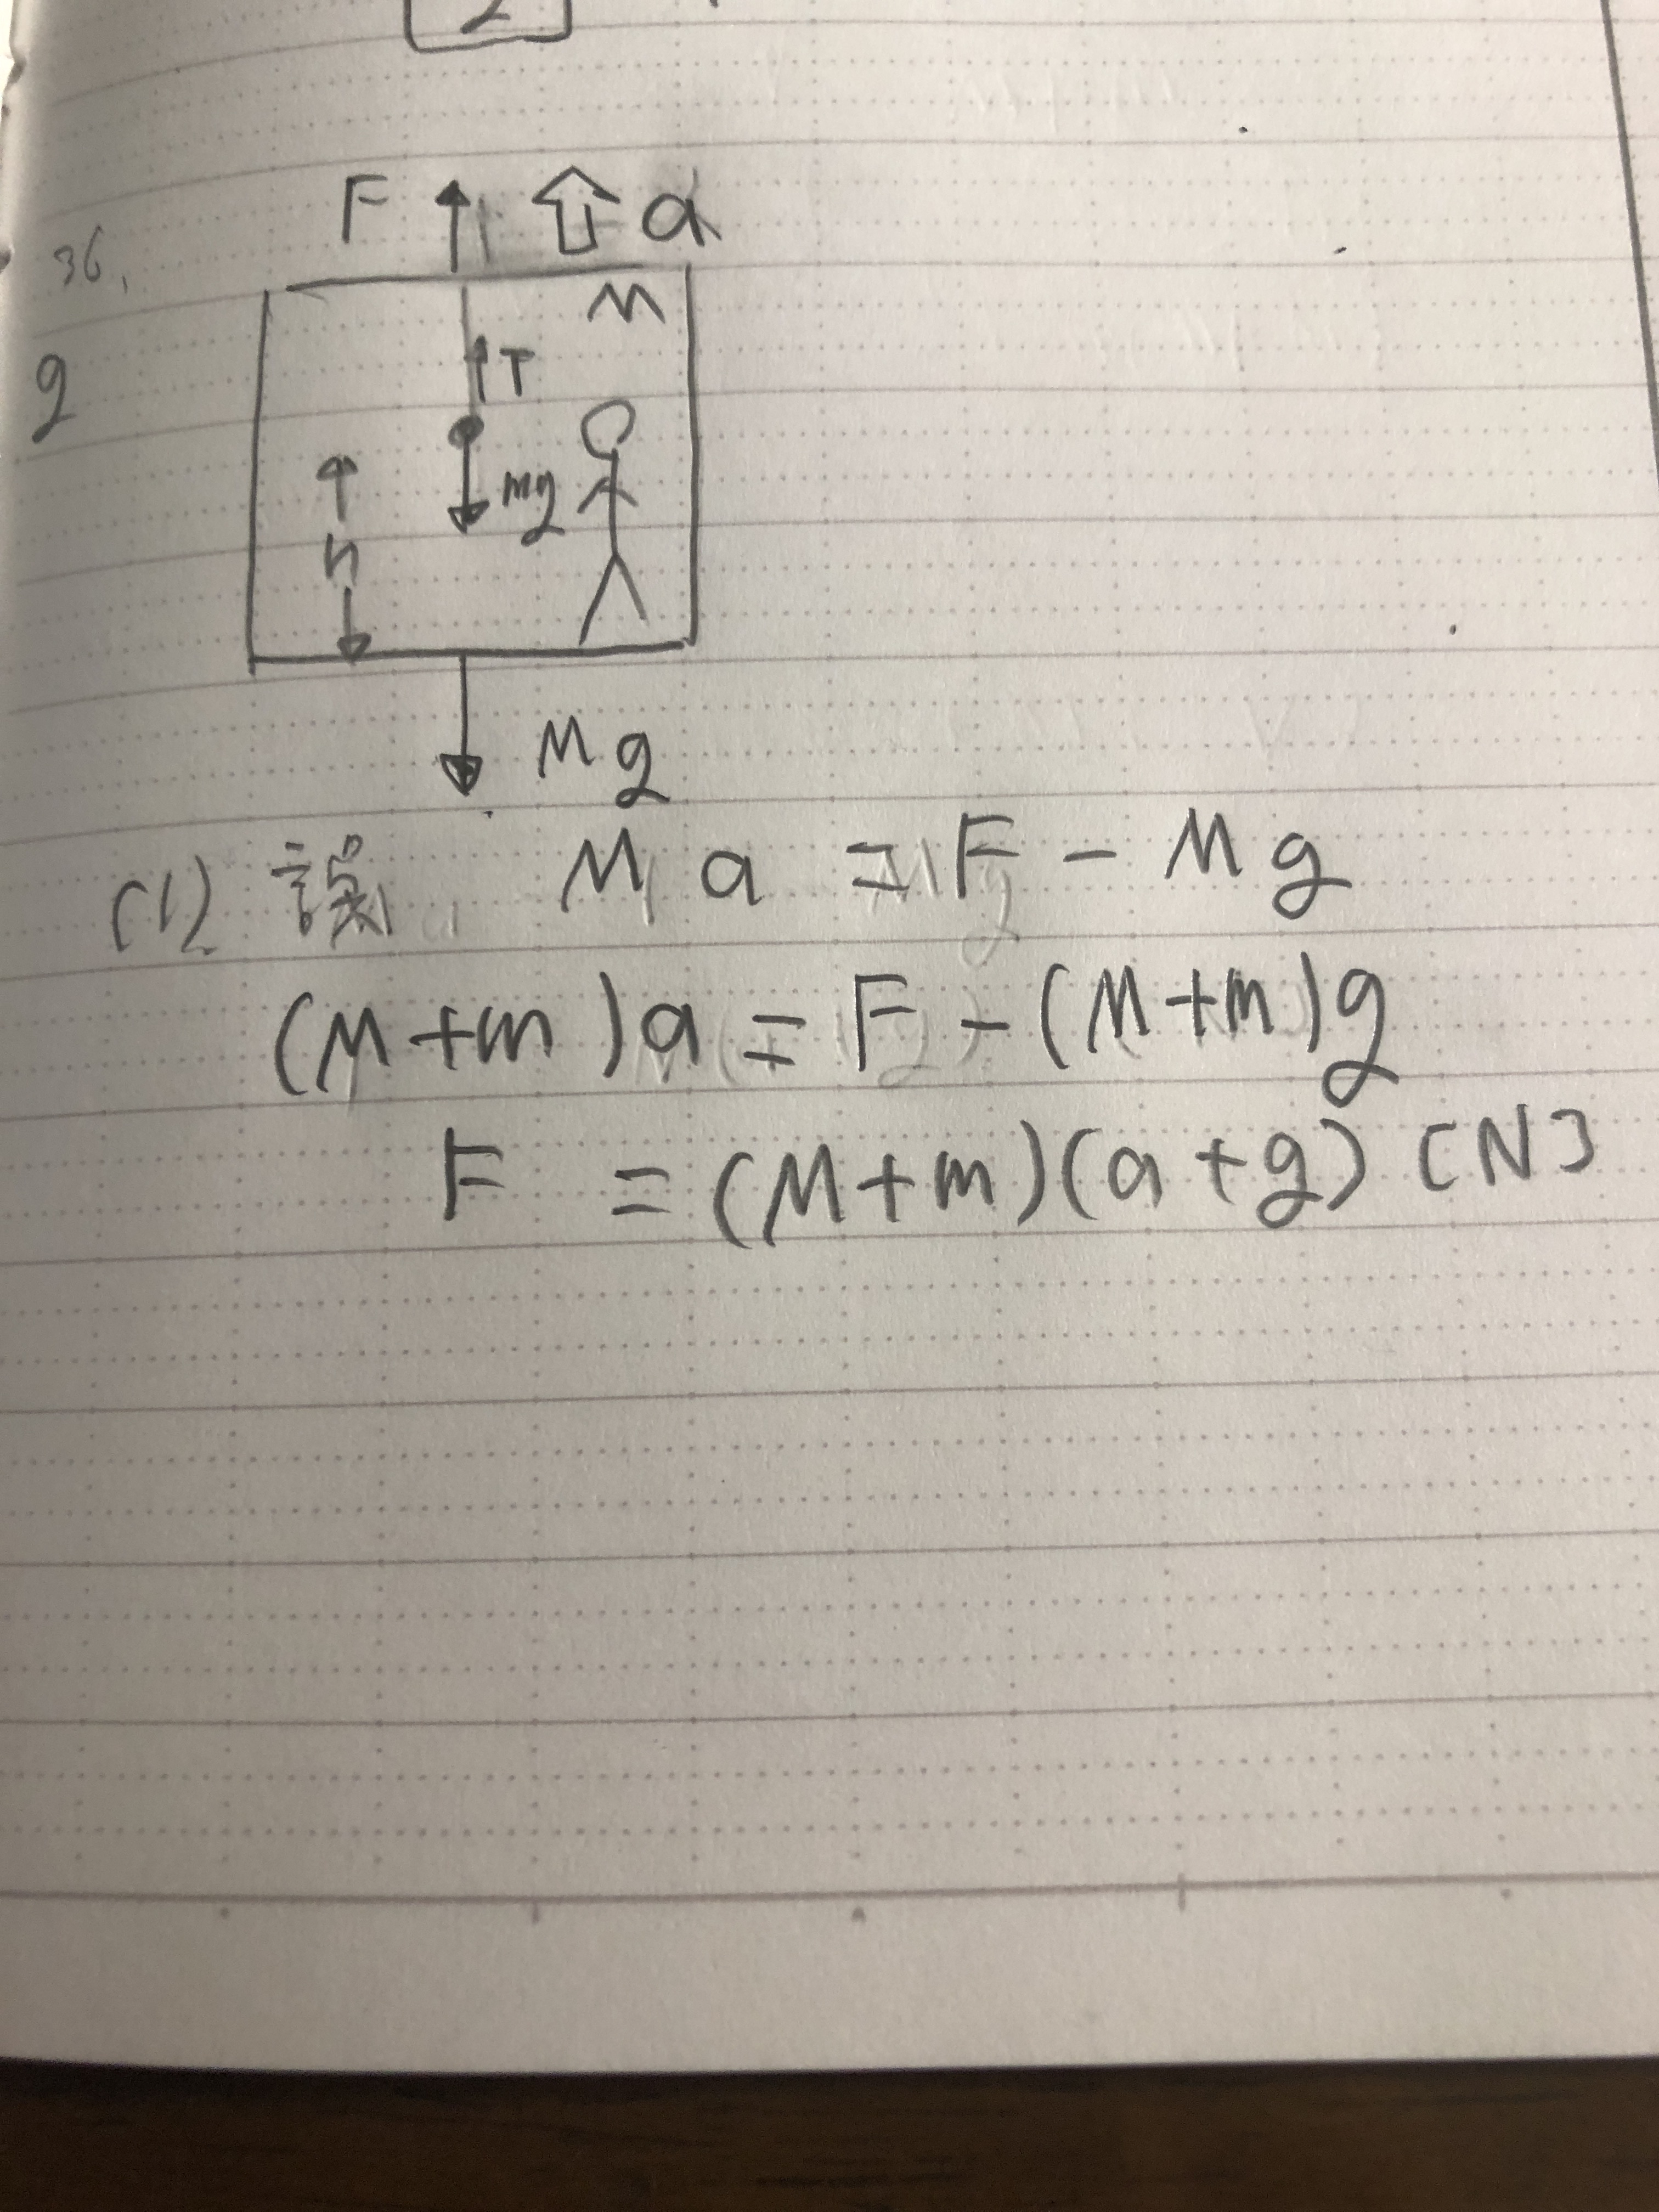 2
F a
36.
M
g
T
mg
h
Mg
(1) 誤 Ma = F - Mg
(M+m)a = F - (M+m)g
F = (M+m)(a+g) [N]